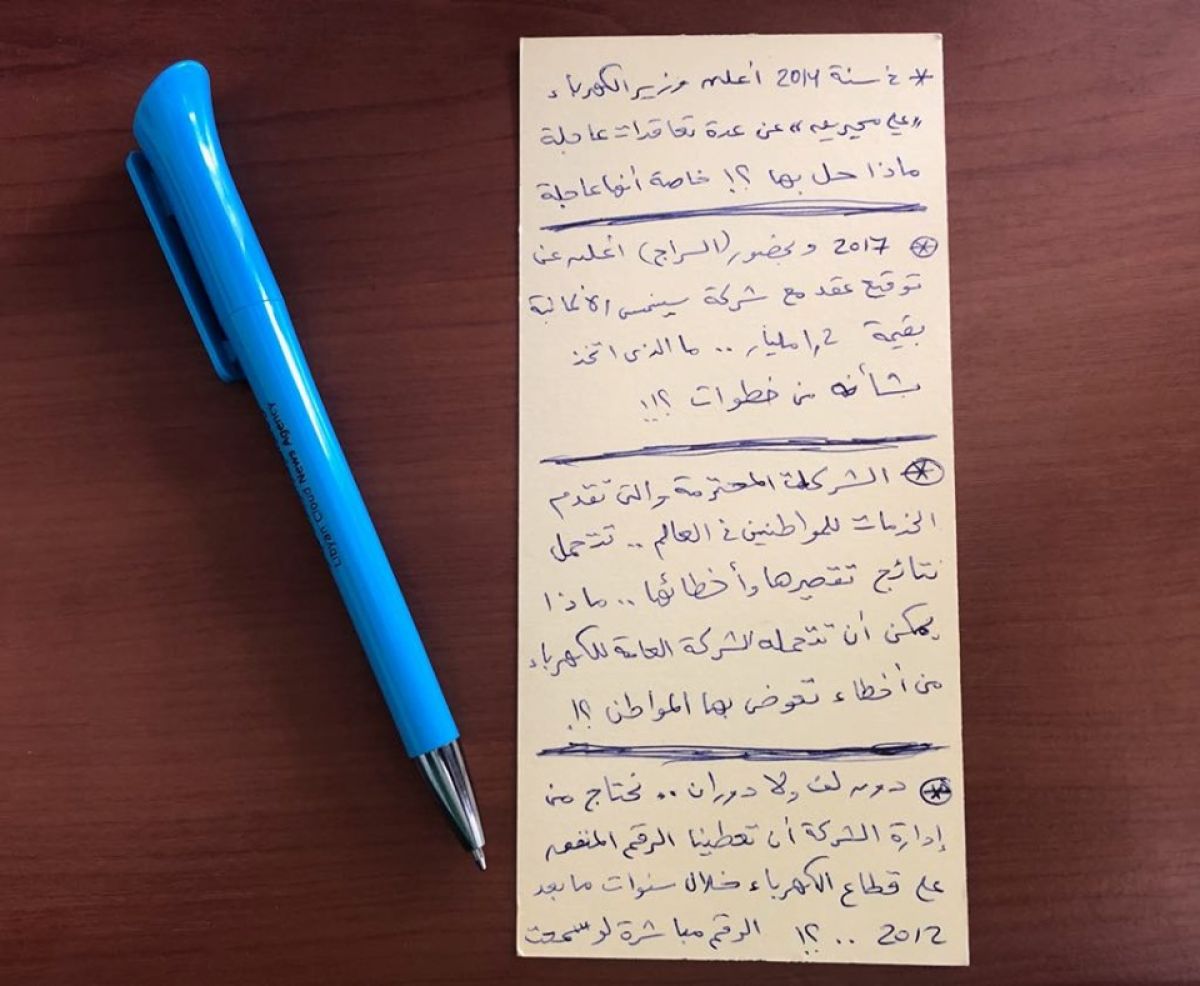 * في سنة 2014 أعلن وزير الكهرباء
«علي محيريق» عن عدة تعاقدات عاجلة
ماذا حل بها ؟! خاصة أنها عاجلة
* 2017 وبحضور (السراج) أعلن عن
توقيع عقد مع شركة سيمنس الألمانية
بقيمة 1,2 مليار .. ما الذي اتخذ
بشأنه من خطوات ؟!!
* الشركات المحترمة والتي تقدم
الخدمات للمواطنين في العالم .. تتحمل
نتائج تقصيرها وأخطائها .. ماذا
يمكن أن تتحمله الشركة العامة للكهرباء
من أخطاء تعوض بها المواطن ؟!
* دون لف ولا دوران .. نحتاج من
إدارة الشركة أن تعطينا الرقم المنفق
على قطاع الكهرباء خلال سنوات ما بعد
2012 .. ؟! الرقم مباشرة لو سمحت
Libyan Cloud News Agency